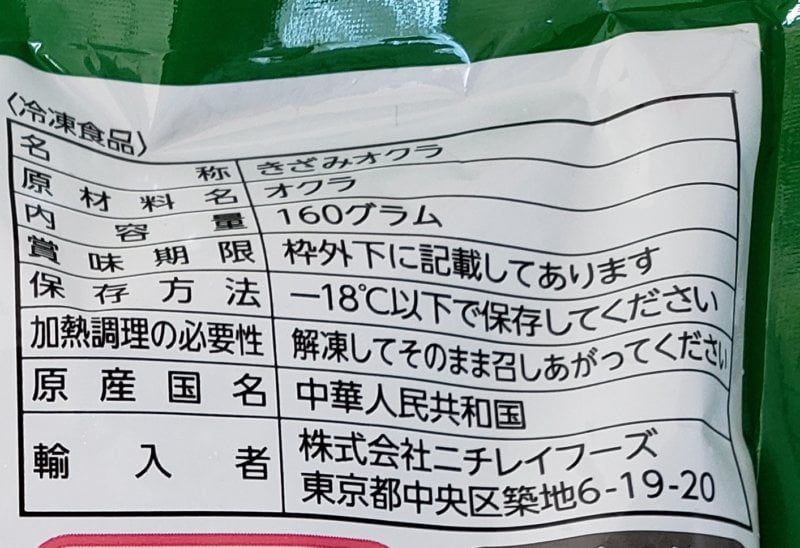 〈冷凍食品〉
名称 きざみオクラ
原材料名 オクラ
内容量 160グラム
賞味期限 枠外下に記載してあります
保存方法 −18℃以下で保存してください
加熱調理の必要性 解凍してそのまま召しあがってください
原産国名 中華人民共和国
輸入者 株式会社ニチレイフーズ
東京都中央区築地6-19-20